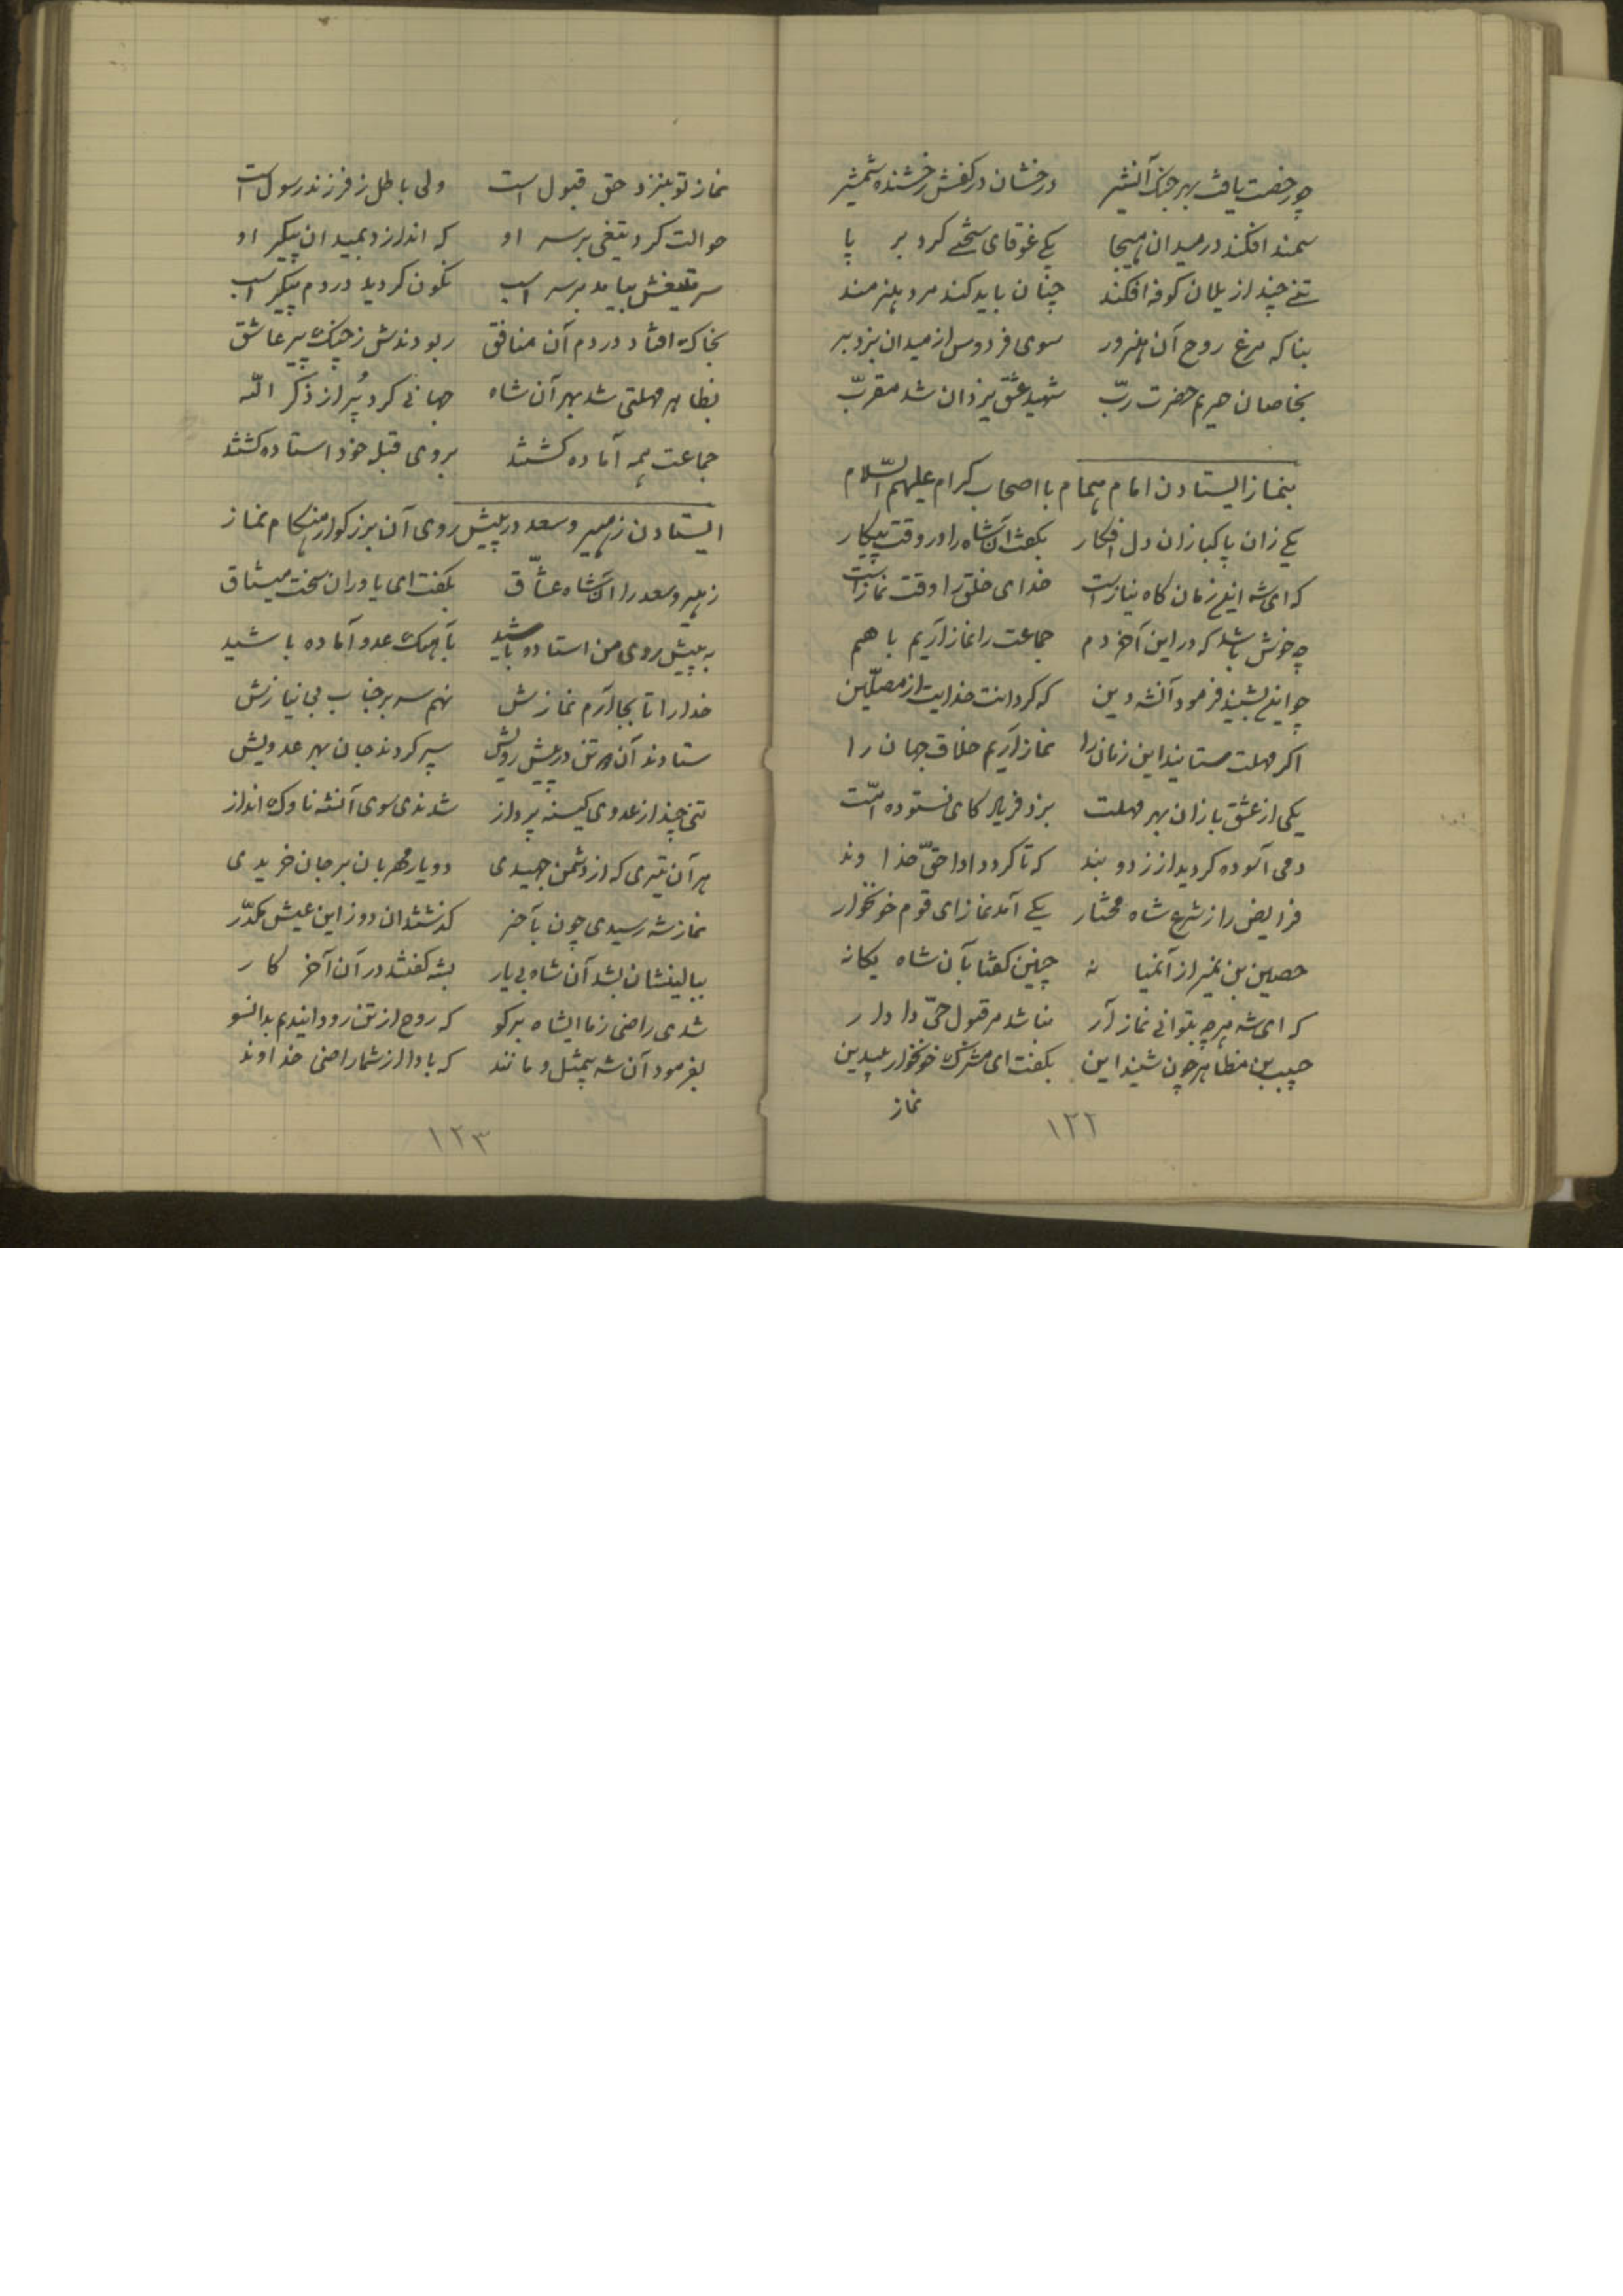 چو رخصت یافت بهر جنک آنشیر درخشان در کفش رخشنده شمشیر
سمند افکند در میدان هیجا یکی غوقای سختی کرد بر پا
تنی چند از یلان کوفه افکند چنان باید کند مرد هنرمند
بناکه مرغ روح آن هنرور سوی فردوس از میدان بزد پر
بخاصان حریم حضرت ربّ شهید عشق یزدان شد مقربّ
بنماز ایستادن امام همام با اصحاب کرام علیهم السّلام
یکی زان پاکبازان دل افکار بکفت آنشاه را در وقت پیکار
که ای شه اینزمان کاه نیاز است خدای خلق را وقت نماز است
چه خوش باشد که در این آخر دم جماعت را نماز آریم با هم
چو این بشنید فرمود آنشه دین که کرداند خدایت از مصلّین
اکر مهلت ستانید این زمان را نماز آریم خلاق جهان را
یکی از عشق بازان بهر مهلت بزد فریاد کای نستوده امّت
دمی آسوده کردید از زد و بند که تا کردد ادا حقّ خدا وند
فرایض را ز شرع شاه مختار یکی آمد نماز ای قوم خونخوار
حصین بن نمیر از آنمیا نه چنین کفتا بآن شاه یکانه
که ای شه هرچه بتوانی نماز آر نباشد مر قبول حیّ دا دار
حبیب بن مظاهر چون شنید این بکفت ای مشرک خونخوار بیدین
نماز
۱۲۲
نماز تو بنزد حق قبول است ولی باطل ز فرزند رسول است
حوالت کرد تیغی بر سر او که اندازد بمیدان پیکر او
سر تیغش بیامد بر سر اسب نکون کردید در دم پیکر اسب
بخاک افتاد در دم آن منافق ربودندش ز چنک پیر عاشق
بظاهر مهلتی شد بهر آن شاه جهانی کرد پُر از ذکر اللّه
جماعت همه آماده کشتند بروی قبله خود استاده کشتند
ایستادن زهیر و سعد در پیش روی آن بزرکوار هنکام نماز
زهیر و سعد را آنشاه عشّاق بکفت ای یاوران سخت میثاق
به پیش روی من استاده باشید بآهنک عدو آماده باشید
خدا را تا بجا آرم نمازش نهم سر بر جناب بی نیازش
ستادند آن دو تن در پیش رویش سپر کردند جان بهر عدویش
تنی چند از عدوی کینه پرداز شدندی سوی آنشه ناوک انداز
هر آن تیری که از دشمن جهیدی دو یار مهربان بر جان خریدی
نماز شه رسیدی چون بآخر کذشتند آن دو زاین عیش مکدّر
ببالینشان بشد آن شاه بی یار بشه کفتند در آن آخر کار
شدی راضی ز ما ایشاه برکو که روح از تن رود ایندم بدانسو
بفرمود آن شه بیمثل و مانند که بادا از شما راضی خداوند
۱۲۳